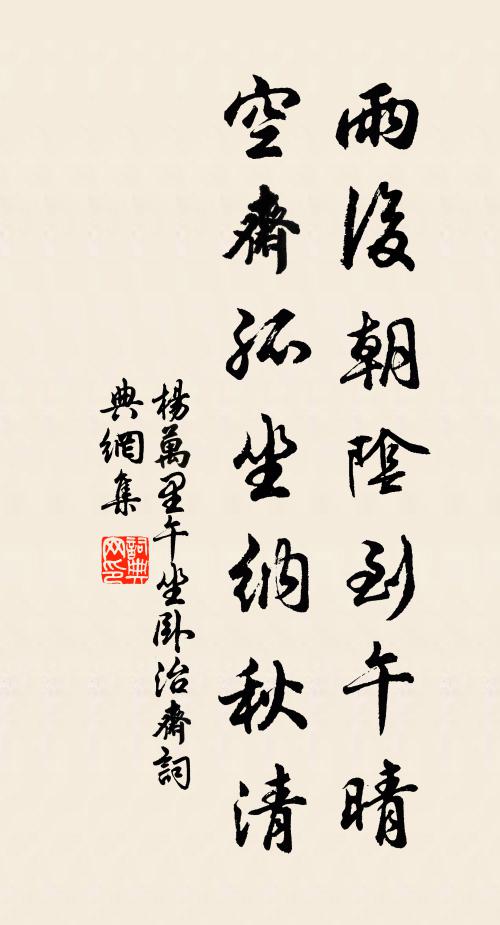 雨後朝陰到午晴
空齋孤坐納秋清
楊萬里午坐臥治齋詞
典網集
詞典
网印